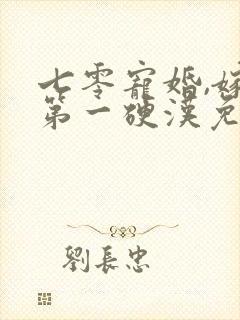 七零寵婚,嫁
第一硬漢免
劉長忠